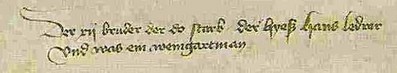 Der xij bruder der do starb der hyeß hans ledrer
vnd was ein weingartman